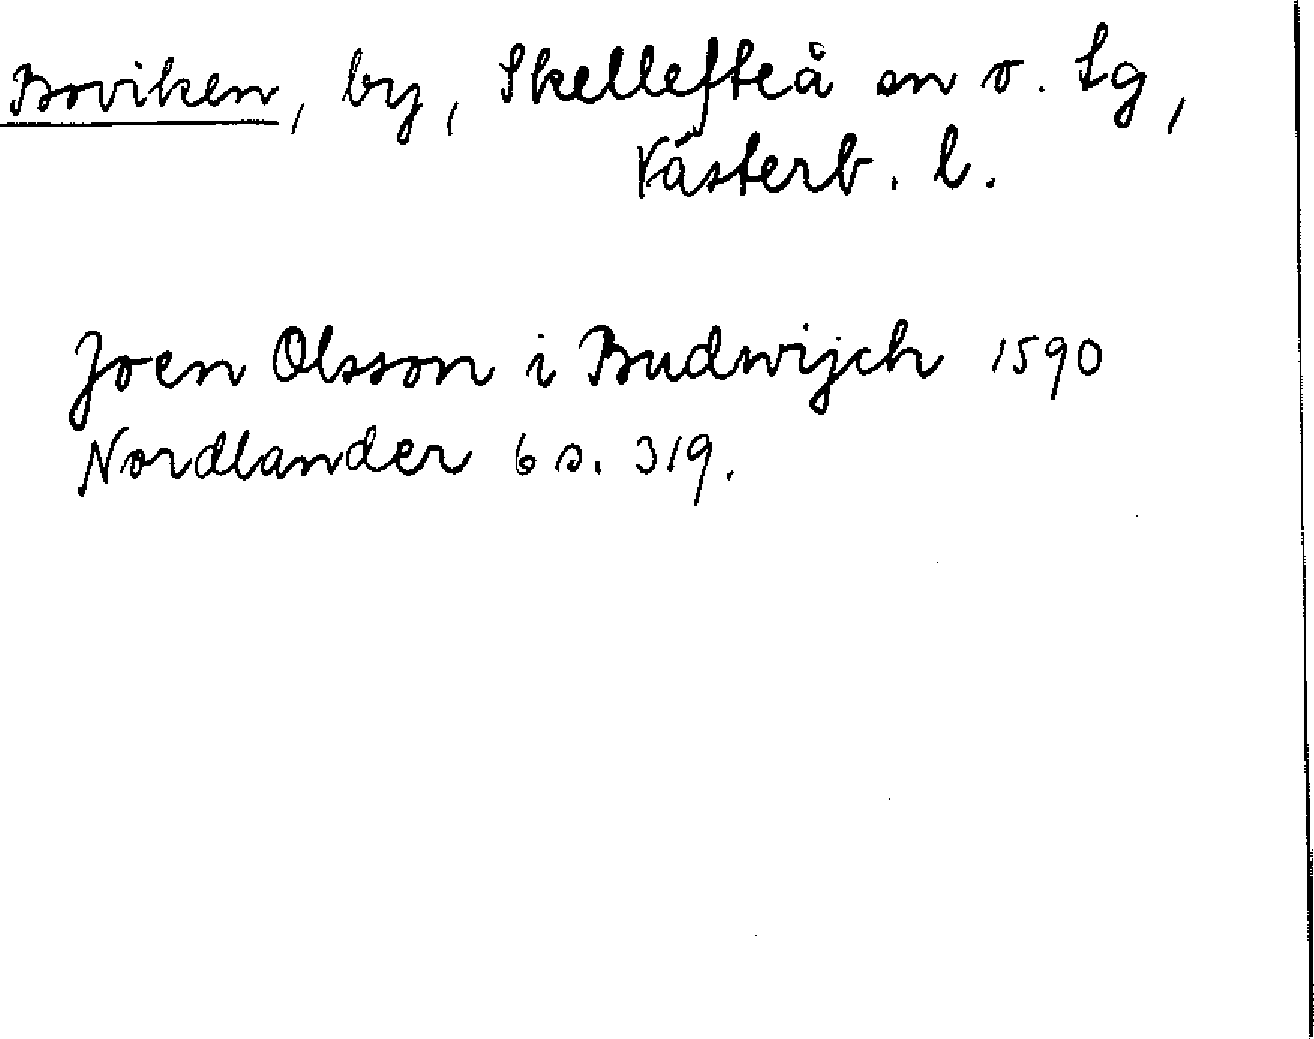 Boviken, by, Skellefteå sn o. tg,
Västerb. l.
Joen Olsson i Budwijch 1590
Nordlander 6 s. 319.